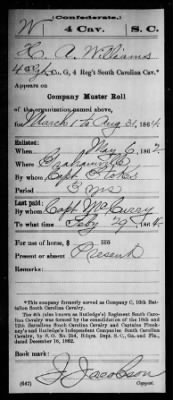 (Confederate.)
W | 4 Cav. | S. C.
H. A. Williams
, Co. G, 4 Reg't South Carolina Cav.*
Appears on
Company Muster Roll
of the organization named above,
for March 1 to Aug 31, 1864.
Enlisted:
When May 6, 186
Where Grahamville
By whom Capt Stokes
Period 3
Last paid:
By whom Capt McCurry
To what time Feby 29, 1864.
For use of horse, $
Present or absent Present
Remarks:
*This company formerly served as Company C, 10th Battalion South Carolina Cavalry.
The 4th (also known as Rutledge's) Regiment South Carolina Cavalry was formed by the consolidation of the 10th and 12th Battalions South Carolina Cavalry and Captains Pinckney's and Rutledge's Independent Companies South Carolina Cavalry, by S. O. No. 254, Hdqrs. Dept. S. C., Ga. and Fla., dated December 16, 1862.
Book mark:
J Jacobson
(642) Copyist.